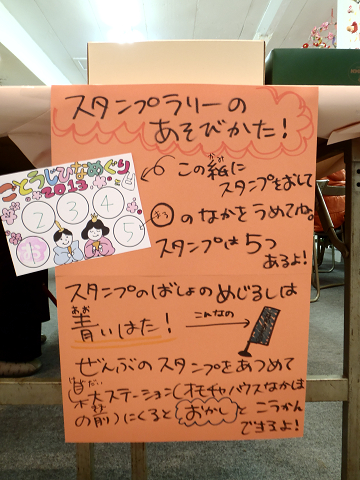 スタンプラリーの
あそびかた！
ごとうじひなめぐり
2013
2
3
4
5
この紙に
かみ
スタンプをおして
のなかをうめてね。
スタンプは5つ
あるよ！
スタンプのばしょのめじるしは
あお
青いはた！
こんなの
ぜんぶのスタンプをあつめて
ステーション(オモチャハウスなかは
の前)にくるとおかしとこうかん
できるよ！